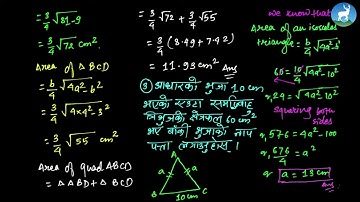 = 3/4 √81-9
= 3/4 √72 cm²
Area of △ BCD
= b/4 √4a²-b²
= 3/4 √4×4²-3²
= 3/4 √55 cm²
Area of quad ABCD
= △ABD + △BCD
= 3/4 √72 + 3/4 √55
= 3/4 (8.49 + 7.42)
= 11.93 cm² Ans
③ आधारको भुजा 10 cm
भएको एउटा समद्विबाहु
त्रिभुजको क्षेत्रफल 60 cm²
भए बाँकी भुजाको नाप
पत्ता लगाउनुहोस् ।
A
a
a
B
10cm
C
we know that
Area of an isosceles
triangle = b/4 √4a²-b²
60 = 10/4 √4a²-10²
or, 24 = √4a²-10²
Squaring both sides
or, 576 = 4a²-100
or, 676/4 = a²
or, a = 13 cm
Ans